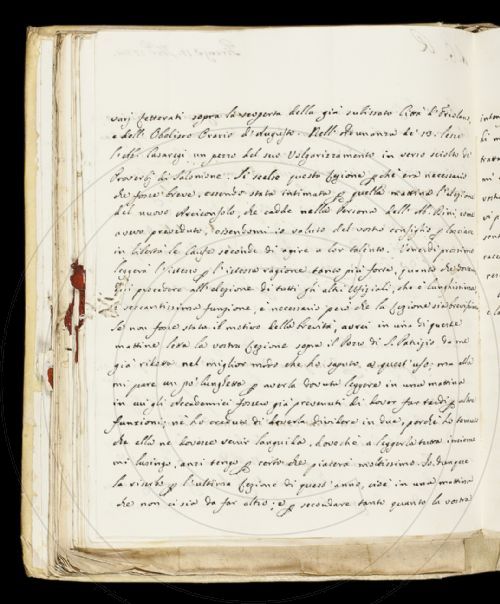 varj Letterati sopra la scoperta della già subissata Città d'Ercolano,
e dell' Obelisco Orario d'Augusto. Nell' Adunanza de' 13. lesse
l'Ab. Casaregi un pezzo del suo Volgarizzamento in verso sciolto di
Proverbj di Salomone. Si scelse questa Lezione p che era necessario
che fosse breve, essendo stata intimata p quella mattina l'elezione
del nuovo Arciconsolo, che cadde nella Persona dell' Ab. Rini, come
avevo preveduto, essendomi io valuto del vostro consiglio p lasciare
in libertà le cause seconde di agire a lor talento. Venerdì prossimo
leggerà l'istesso p l'istessa ragione tanto più forte, quanto che
procedere all' elezione di tutti gli altri Ufiziali, che è lunghissima
e seccantissima funzione, è necessario però che la Lezione sia brevissima
Se non fosse stata il motivo della brevità, avrei in una di queste
mattine letta la vostra Lezione sopra il Pozzo di S. Patrizio da me
già ridotta nel miglior modo che ho saputo a quest' uso; ma ella
mi pare un po' lunghetta p averla dovuta leggere in una mattina
in cui gli Accademici fossero già prevenuti di dover far tardi p altre
funzioni; ne ho creduto di doverla dividere in due, perchè ho temuto
che ella ne dovesse venir languida, dovechè a leggerla tutta insieme
mi lusingo, anzi tengo p certo che piacerà moltissimo. Io dunque
la riserbo p l'ultima Lezione di quest' anno, cioè in una mattina
che non ci sia da far altro; e p secondare tanto quanto la vostra